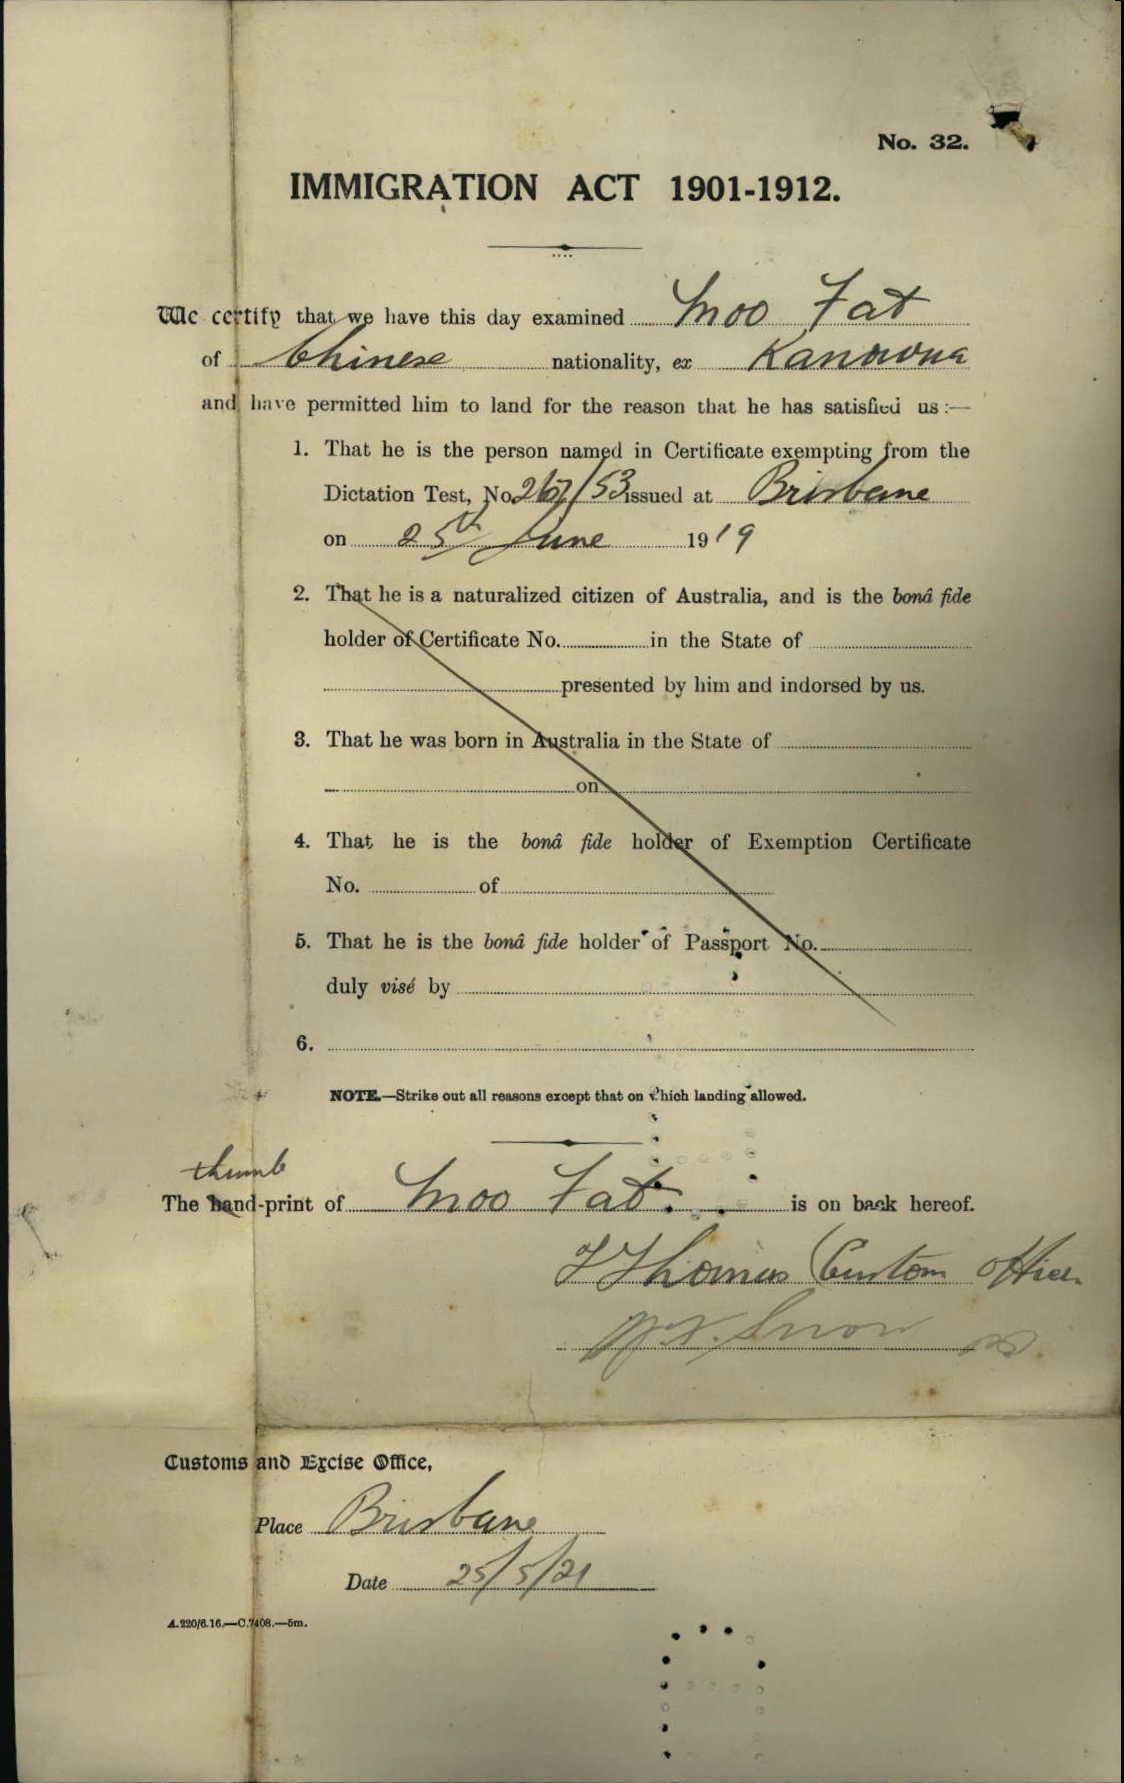 No. 32.
IMMIGRATION ACT 1901-1912.
We certify that we have this day examined Moo Fat
of Chinese nationality, ex Kanowna
and have permitted him to land for the reason that he has satisfied us :—
1. That he is the person named in Certificate exempting from the
Dictation Test, No. 267/53 issued at Brisbane
on 25th June 1919
2. That he is a naturalized citizen of Australia, and is the bonâ fide
holder of Certificate No. in the State of
presented by him and indorsed by us.
3. That he was born in Australia in the State of
on
4. That he is the bonâ fide holder of Exemption Certificate
No. of
5. That he is the bonâ fide holder of Passport No.
duly visé by
6.
NOTE.—Strike out all reasons except that on which landing allowed.
thumb
The hand-print of Moo Fat. is on back hereof.
J Thomas (Custom Officer
Snow
Customs and Excise Office,
Place Brisbane
Date 25/5/21
A.220/6.16.—C.7408.—5m.